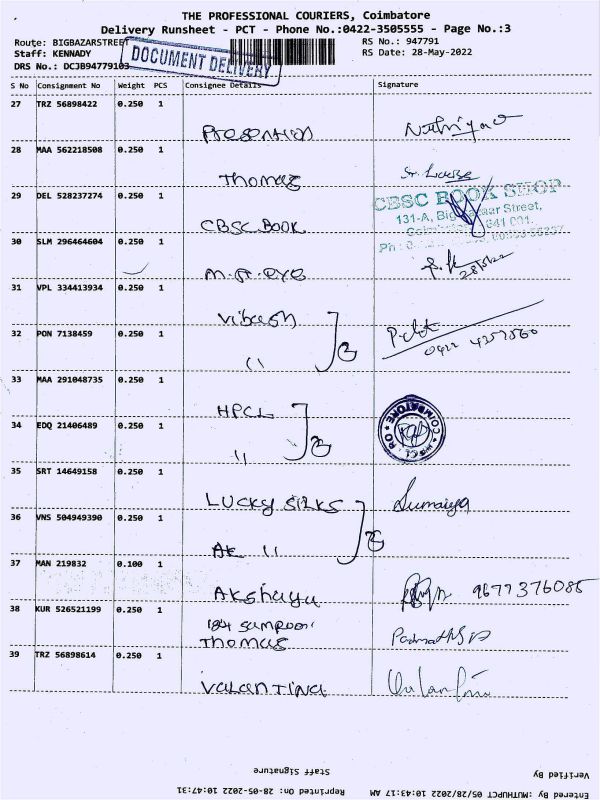 THE PROFESSIONAL COURIERS, Coimbatore
Delivery Runsheet - PCT - Phone No.:0422-3505555 - Page No.:3
Route: BIGBAZARSTREET RS No.: 947791
Staff: KENNADY RS Date: 28-May-2022
DOCUMENT DELIVERY
DRS No.: DCJB94779103
S No Consignment No Weight PCS Consignee Details Signature
27 TRZ 56898422 0.250 1
Presention
28 MAA 562218508 0.250 1
Thomas
29 DEL 528237274 0.250 1
CBSC BOOK
CBSC BOOK SHOP
131-A, Big Bazaar Street,
30 SLM 296464604 0.250 1
M.A. EYE
31 VPL 334413934 0.250 1
Vibash
32 PON 7138459 0.250 1
0422 4357560
33 MAA 291048735 0.250 1
HPCL
34 EDQ 21406489 0.250 1
COIMBATORE RO
35 SRT 14649158 0.250 1
LUCKY SILKS Sumaiya
36 VNS 504949390 0.250 1
37 MAN 219832 0.100 1
Akshaya 9677376085
38 KUR 526521199 0.250 1
Thomas
39 TRZ 56898614 0.250 1
VALANTINA
Staff Signature Verified By
Reprinted On: 28-05-2022 10:47:31 Entered By :MUTHUPCT 05/28/2022 10:43:17 AM